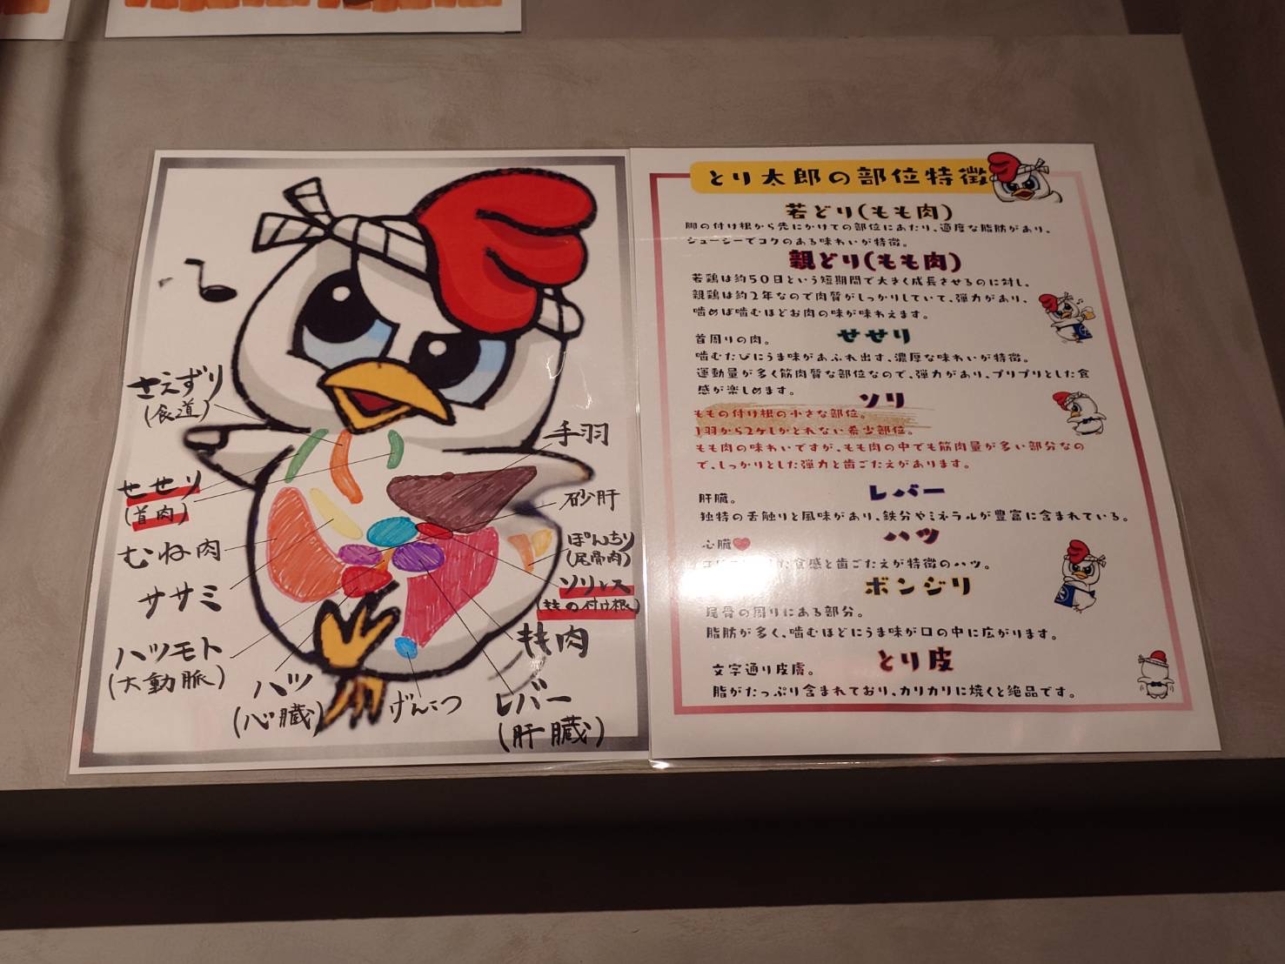 さえずり
(食道)
せせり
(首肉)
むね肉
ササミ
ハツモト
(大動脈)
ハツ
(心臓)
げんこつ
レバー
(肝臓)
手羽
砂肝
ぽんちり
(尾骨肉)
ソリレス
(ももの付け根)
もも肉
とり太郎の部位特徴
若どり(もも肉)
脚の付け根から先にかけての部位にあたり、適度な脂肪があり、
ジューシーでコクのある味わいが特徴。
親どり(もも肉)
若鶏は約50日という短期間で大きく成長させるのに対し、
親鶏は約2年なので肉質がしっかりしていて、弾力があり、
噛めば噛むほどお肉の味が味わえます。
せせり
首周りの肉。
噛むたびにうま味があふれ出す、濃厚な味わいが特徴。
運動量が多く筋肉質な部位なので、弾力があり、プリプリとした食
感が楽しめます。
ソリ
ももの付け根の小さな部位。
1羽から2ケしかとれない希少部位。
もも肉の味わいですが、もも肉の中でも筋肉量が多い部分なの
で、しっかりとした弾力と歯ごたえがあります。
レバー
肝臓。
独特の舌触りと風味があり、鉄分やミネラルが豊富に含まれている。
ハツ
心臓
食感と歯ごたえが特徴のハツ。
ボンジリ
尾骨の周りにある部分。
脂肪が多く、噛むほどにうま味が口の中に広がります。
とり皮
文字通り皮膚。
脂がたっぷり含まれており、カリカリに焼くと絶品です。